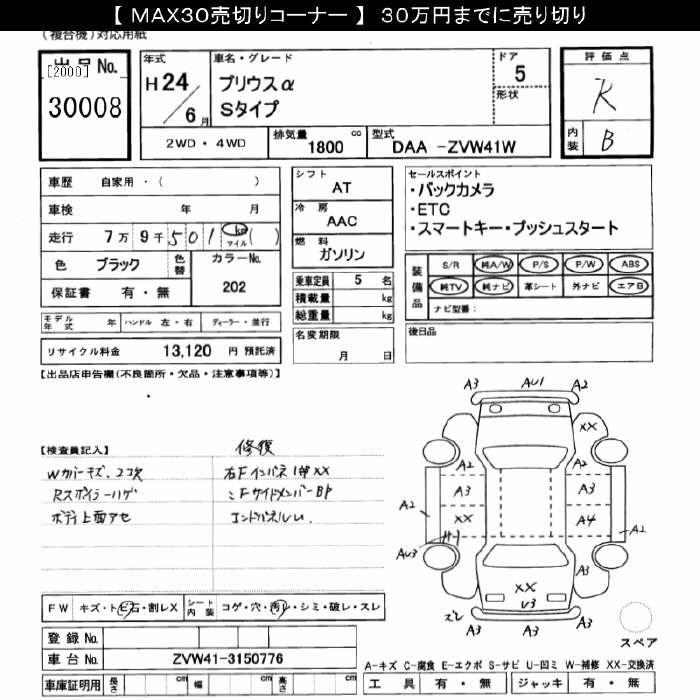 【 MAX30売切りコーナー 】 30万円までに売り切り
(複合機)対応用紙
出品No.
[2000]
30008
年式
H24/6月
車名・グレード
プリウスα
Sタイプ
ドア
5
形状
2WD・4WD
排気量
1800 cc
型式
DAA -ZVW41W
評価点
R
内装
B
車歴 自家用・( )
車検 年 月
走行 7万9千501 km マイル ( )
色 ブラック 色替 カラーNo.
保証書 有・無 202
モデル年式 年 ハンドル 左・右 ディーラー・並行
リサイクル料金 13,120 円 預託済
シフト
AT
冷房
AAC
燃料
ガソリン
乗車定員 5 名
積載量 kg
総重量 kg
名変期限
月 日
セールスポイント
・バックカメラ
・ETC
・スマートキー・プッシュスタート
装備品
S/R 純A/W P/S P/W ABS
純TV 純ナビ 革シート 外ナビ エアB
ナビ型番:
後日品
【出品店申告欄(不良箇所・欠品・注意事項等)】
【検査員記入】
修復
Wカバーキズ、ココ欠
右Fインパネ 1部XX
Rスポイラーハゲ
〃FサイドメンバーBP
ボディ上面アセ
エンドパネルU.
A3 AU1 A2
XX
A2 A2
A3 A3
A2 XX A4 A2
AU3
A3
XX
V3
ズレ
A3 A3
スペア
FW キズ・トビ石・割レX
シート内装 コゲ・穴・汚レ・シミ・破レ・スレ
登録No.
車台No. ZVW41-3150776
車庫証明用 長さ cm 幅 cm 高さ cm
A-キズ C-腐食 E-エクボ S-サビ U-凹ミ W-補修 XX-交換済
工具 有・無 ジャッキ 有・無